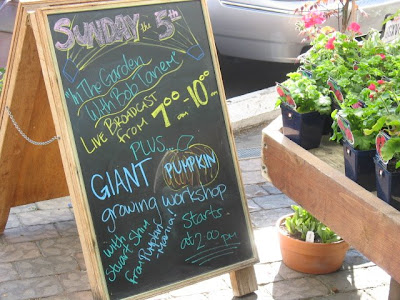 SUNDAY the 5th
"In The Garden
With Bob Lanier"
LIVE BROADCAST
from 7:00 - 10:00
am
PLUS...
GIANT PUMPKIN
growing workshop
with starts
at 2:00 pm
from Pumpkin